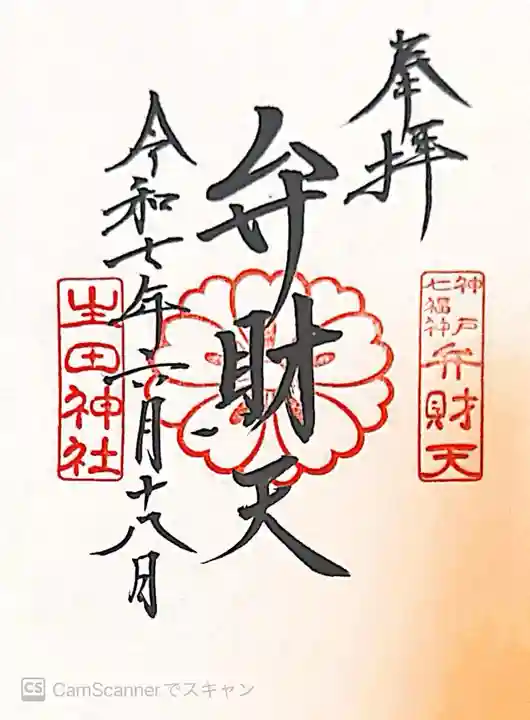 奉拝
神戸
七福神
弁財天
弁財天
令和七年六月十八日
生田神社
CS CamScannerでスキャン